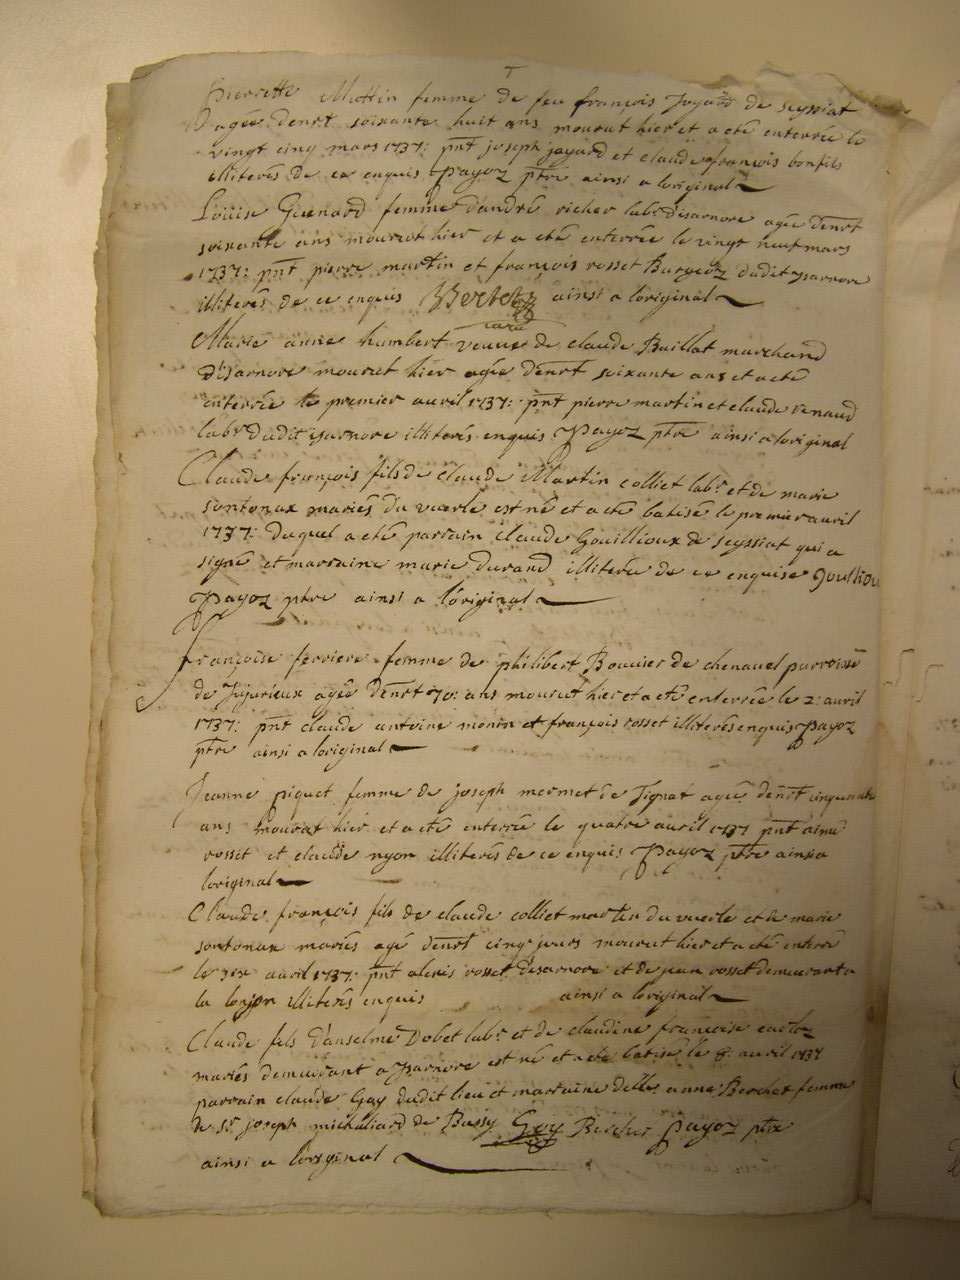 Pierrette Mottin femme de feu françois Joyard de seyssiat
agée denrt soixante huit ans mourut hier et a eté enterrée le
vingt cinq mars 1737: pnt joseph jayard et claude françois bonfils
illiterés de ce enquis Payoz ptre ainsi a loriginal
Loüise Guenard femme dandré richer labr disarnore agée denrt
soixante ans mourut hier et a eté enterrée le vingt neuf mars
1737: pnt pierre martin et françois rosset Burgeoz dudit isarnore
illiterés de ce enquis Berchet ainsi a loriginal
curé
Marie anne humbert veuve de claude Baillat marchand
disarnore mourut hier agée denrt soixante ans et a eté
enterrée le premier avril 1737: pnt pierre martin et claude renaud
labr dudit isarnore illiterés enquis Payoz ptre ainsi a loriginal
Claude françois fils de claude Martin colliet labr et de marie
sontonax mariés du vuerle est né et a eté batisé le premier avril
1737: duquel a eté parrain claude Gouillioux de seyssiat qui a
signé et marraine marie durand illiterée de ce enquise Goulliou
Payoz ptre ainsi a loriginal
françoise ferriere femme de philibert Bouvier de chenavel parroisse
de Jujurieux agée denrt 70: ans mourut hier et a eté enterrée le 2: avril
1737: pnt claude antoine monin et françois rosset illiterés enquis Payoz
ptre ainsi a loriginal
Jeanne piquet femme de joseph mermet de Tignat agée denrt cinquante
ans mourut hier et a eté enterrée le quatre avril 1737 pnt aimé
rosset et claude nyon illiterés de ce enquis Payoz ptre ainsi a
loriginal
Claude françois fils de claude colliet martin du vuerle et de marie
sontonax mariés agé denrt cinq jours mourut hier et a eté enterré
le six avril 1737: pnt alexis rosset disarnore et de jean rosset demeurant a
la illiterés enquis ainsi a loriginal
Claude fils danselme Dobet labr et de claudine françoise
mariés demeurant a isarnore est né et a eté batisé le 8: avril 1737
parrain claude Gay dudit lieu et marraine delle anne Berchet femme
de sr joseph michaliard de Bussy Gay Berchet Payoz ptre
ainsi a loriginal